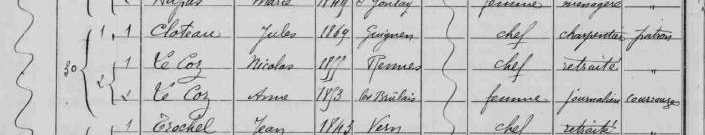 Marie 1844 femme ménagère "
30 1 1 Cloteau Jules 1869 Guignen chef charpentier patron
2 1 Le Coz Nicolas Rennes chef retraité "
2 Le Coz Anne 1873 femme journalière
1 Trochel Jean 1843 Vern chef retraité